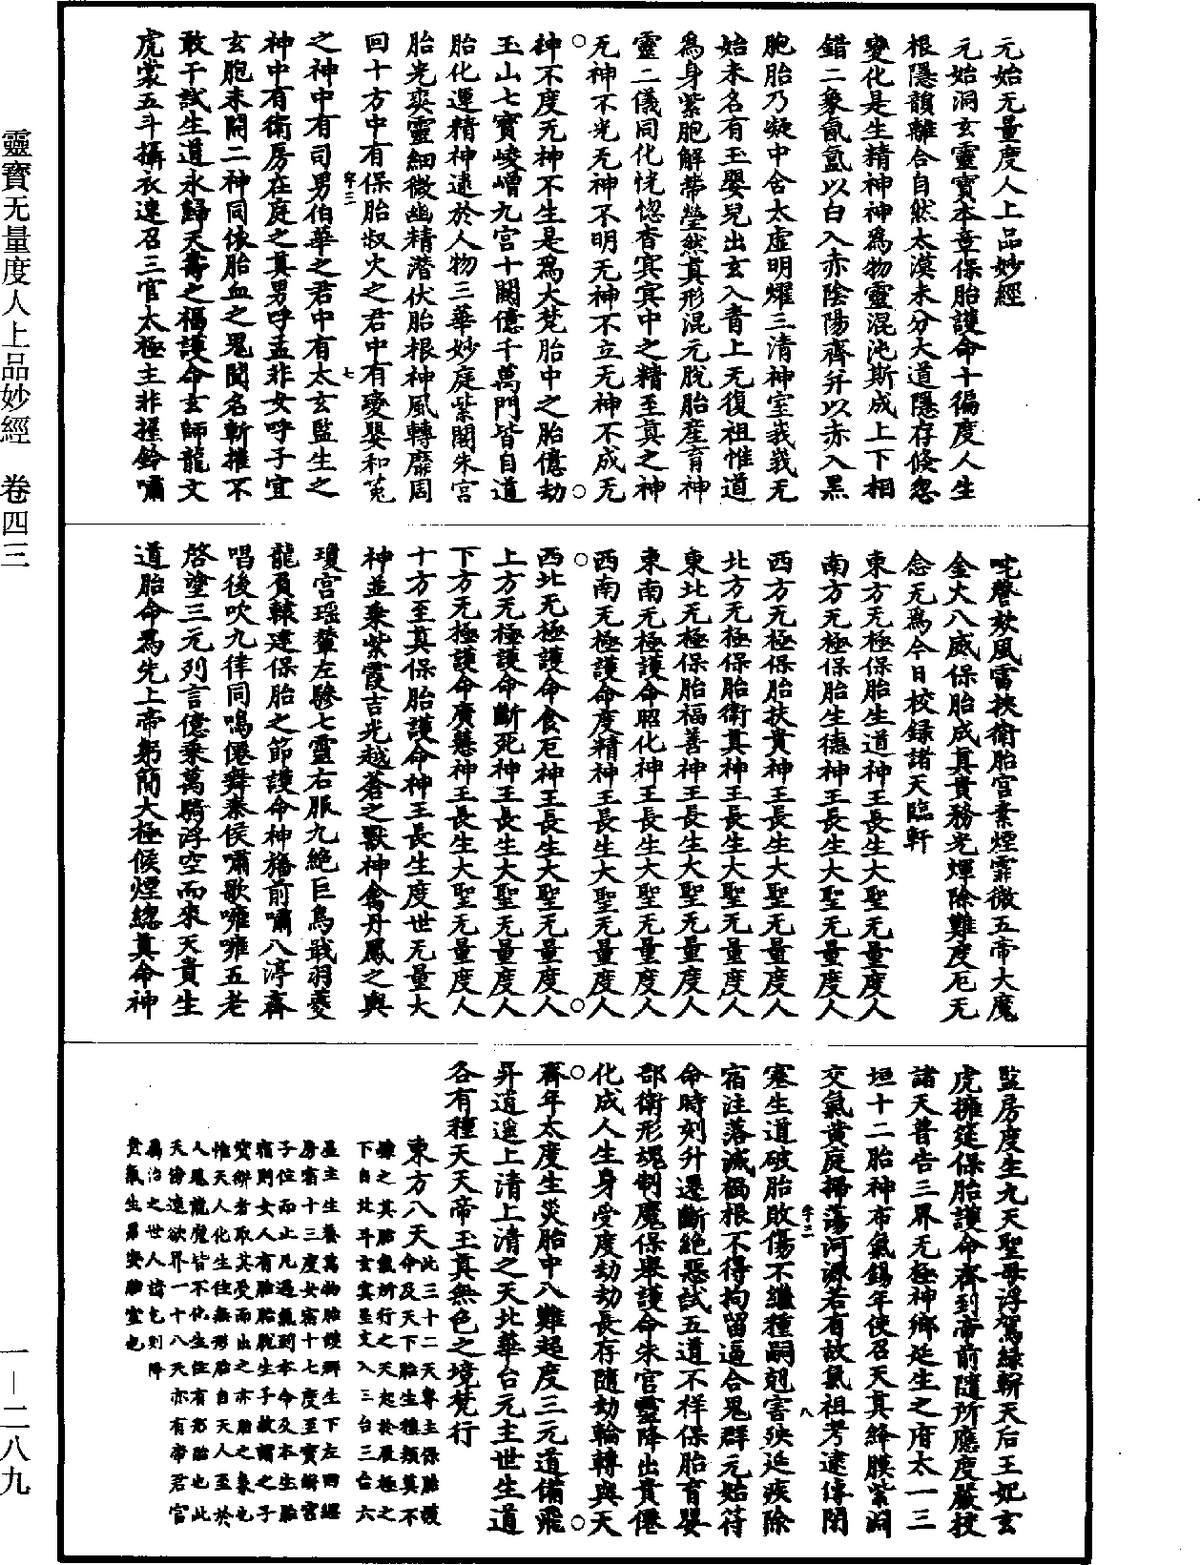 元始无量度人上品妙經
元始洞玄靈寶本章保胎護命十徧度人生
根隱韻離合自然太漠未分大道隱存倏忽
變化是生精神神爲物靈混沌斯成上下相
錯二象氤氳以白入赤陰陽齊并以赤入黑
胞胎乃凝中含太虛明燿三清神室峩峩无
始未名有玉嬰兒出玄入青上无復祖惟道
爲身紫胞解帶瑩然真形混元脫胎産育神
靈二儀同化恍惚杳冥冥中之精至真之神
无神不光无神不明无神不立无神不成无
神不度无神不生是爲大梵胎中之胎億劫
玉山七寶峻嶒九宮十闕億千萬門皆自道
胎化運精神遠於人物三華妙庭紫闕朱宮
胎光奕靈細微幽精潛伏胎根神風轉靡周
回十方中有保胎叔火之君中有變嬰和菟
之神中有司男伯華之君中有太玄監生之
神中有衛房在庭之真男呼孟非女呼子宜
玄胞未開二神同依胎血之鬼聞名斬摧不
敢干試生道永歸天壽之福護命玄師龍文
虎裳五斗攝衣速召三官太極主非握鈴嘯
咤聲欻風雷挾衛胎宮素煙霏微五帝大魔
金火八威保胎成真貴務光煇除難度厄无
念无爲今日校録諸天臨軒
東方无極保胎生道神王長生大聖无量度人
南方无極保胎生德神王長生大聖无量度人
西方无極保胎扶貴神王長生大聖无量度人
北方无極保胎衛真神王長生大聖无量度人
東北无極保胎福善神王長生大聖无量度人
東南无極護命昭化神王長生大聖无量度人
西南无極護命度精神王長生大聖无量度人
西北无極護命食厄神王長生大聖无量度人
上方无極護命斷死神王長生大聖无量度人
下方无極護命廣慧神王長生大聖无量度人
十方至真保胎護命神王長生度世无量大
神並乘紫霞吉光越蒼之獸神禽丹鳳之輿
瓊宮瑶輦左驂七靈右服九絶巨鳥戢羽蔆
龍負轅建保胎之節護命神旛前嘯八渟齊
唱後吹九律同鳴僊舞秦侯嘯歌嗈嗈五老
啓塗三元列言億乘萬騎浮空而來天貴生
道胎命爲先上帝躬簡大極候煙總真命神
監房度生九天聖母浮駕緑軿天后王妃玄
虎擁筵保胎護命齊到帝前隨所應度嚴校
諸天普告三界无極神鄉延生之府太一三
垣十二胎神布氣錫年使召天真絳膜紫洞
交氣黃庭掃蕩河源若有故氣祖考逮傳閉
塞生道破胎敗傷不繼種嗣剋害殃延疾除
宿注落滅禍根不得拘留逼合鬼群元始符
命時刻升遷斷絶惡試五道不祥保胎育嬰
部衛形魂制魔保舉護命朱官靈降出貴僊
化成人生身受度劫劫長存隨劫輪轉與天
齊年太度生災胎中八難超度三元道備飛
昇逍遥上清上清之天北華台元主世生道
各有種天天帝玉真無色之境梵行
東方八天此三十二天尊主保胎護
命及天下胎生種類莫不
隸之其胎氣所行之天起於辰極之
下自北斗玄臺星文入三台三台六
星主生養萬物胎護卵生下左回經
房宿十三度女宿十七度至寶缾宮
子位而止凡過氣到本命及本生胎
宿則女人有胎胎脫生子故謂之子
寶缾者取其受而出之亦胎之象也
惟天人化生住無形胎自天人至於
人鬼龍魔皆不化生住有形胎也此
天徐遠欲界一十八天亦有帝君官
屬治之世人請乞則降
貴氣生男安胎室也
靈寶无量度人上品妙經　卷四三
一—二八九
字二　七
字二　八